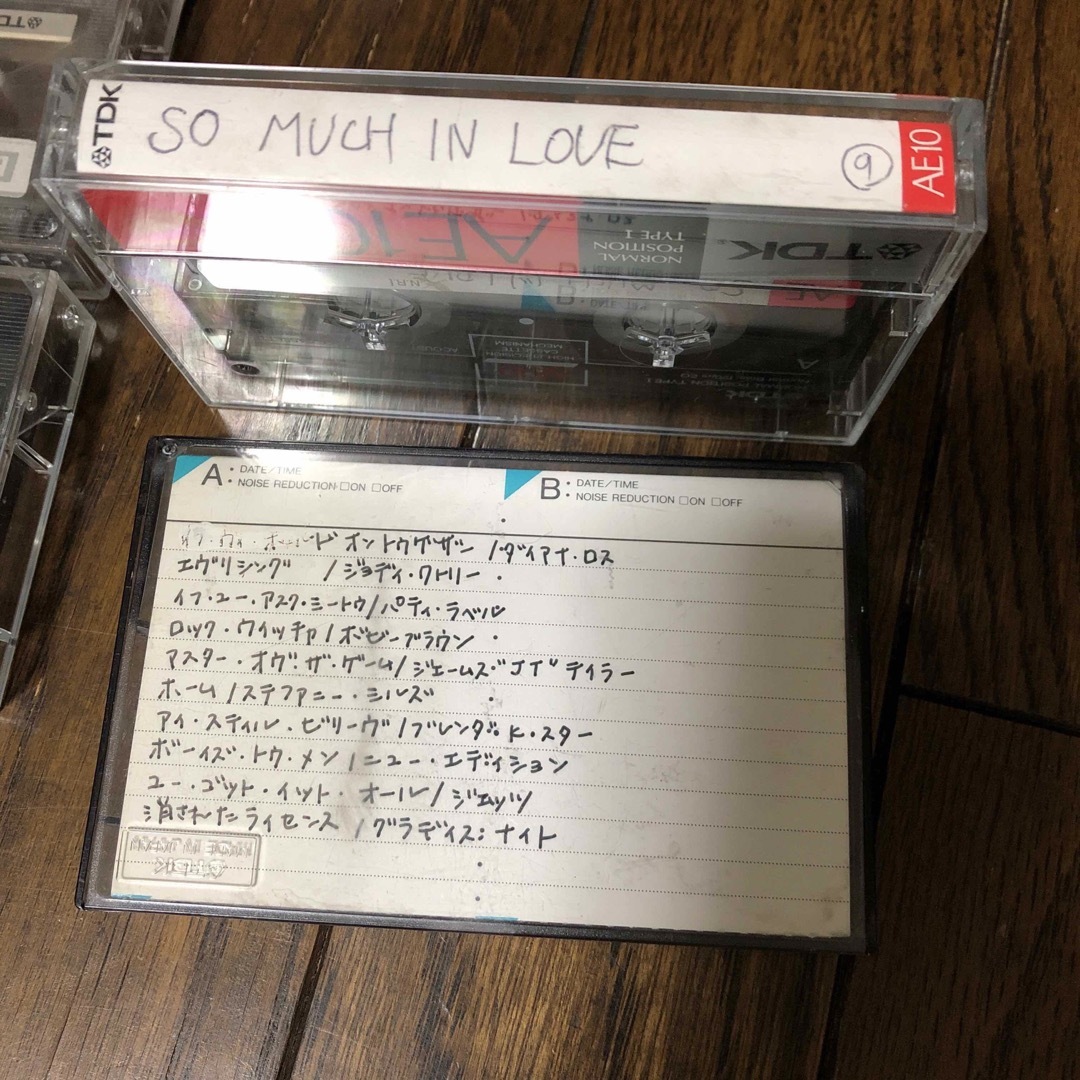 TDK
TDK SO MUCH IN LOVE 9 AE10
AE10
NORMAL
POSITION
TYPE I
TDK
AE
HIGH PRECISION
CASSETTE
MECHANISM
A
A: DATE/TIME
NOISE REDUCTION □ON □OFF
B: DATE/TIME
NOISE REDUCTION □ON □OFF
オントゥゲザー / ダイアナ・ロス
エヴリシング / ジョディ・ワトリー
イフ・ユー・アスク・ミートゥ / パティ・ラベル
ロック・ウィッチャ / ボビーブラウン
マスター・オヴ・ザ・ゲーム / ジェームズ"JT"テイラー
ホーム / ステファニー・ミルズ
アイ・スティル・ビリーヴ / ブレンダ・K・スター
ボーイズ・トゥ・メン / ニュー・エディション
ユー・ゴット・イット・オール / ジェッツ
消されたライセンス / グラディス・ナイト
MADE IN JAPAN
TDK